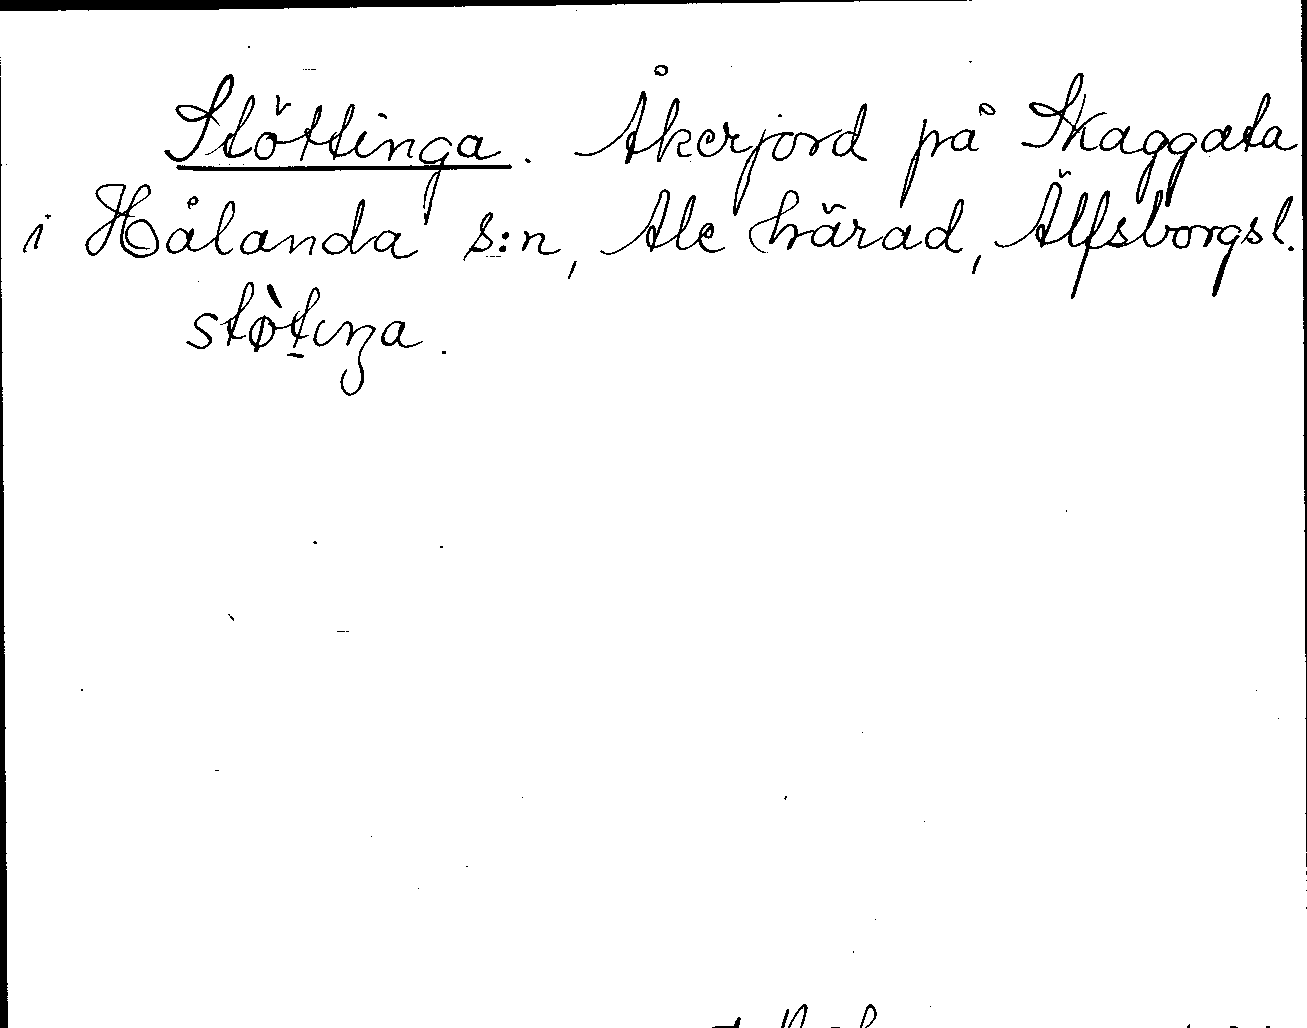 Stöttinga. Åkerjord på Skaggata
i Hålanda s:n, Ale härad, Älfsborgsl.
stø̀t̠ıŋa.